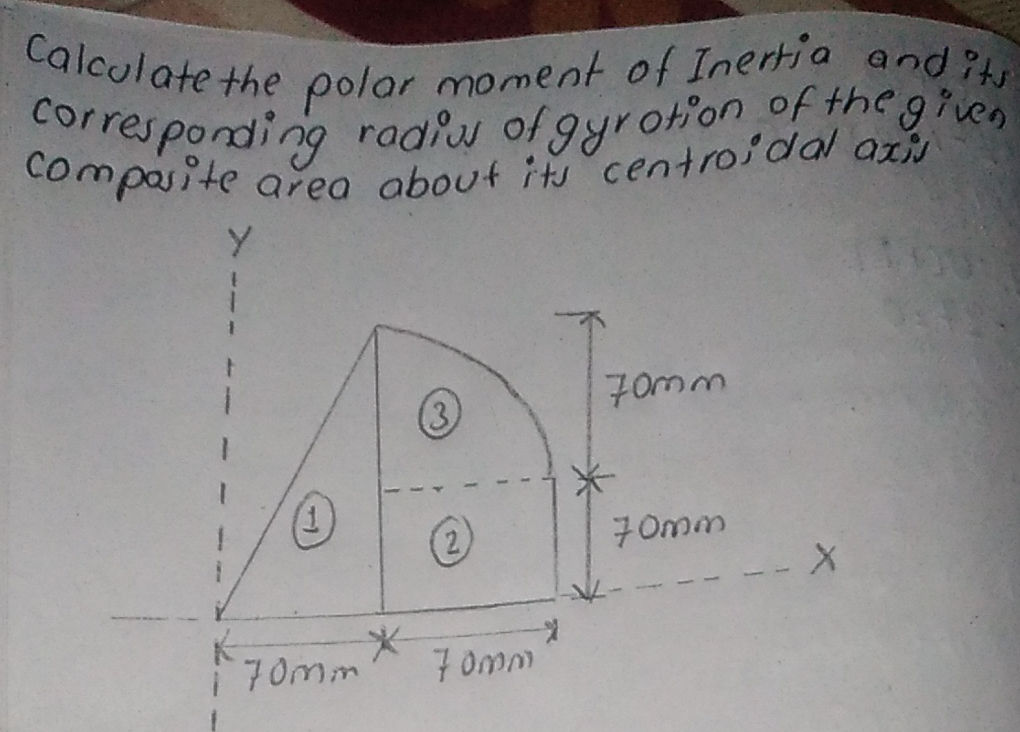 Calculate the polar moment of Inertia and its
corresponding radius of gyration of the given
composite area about its centroidal axis
Y
70mm
3
1
2
70mm
X
70mm 70mm